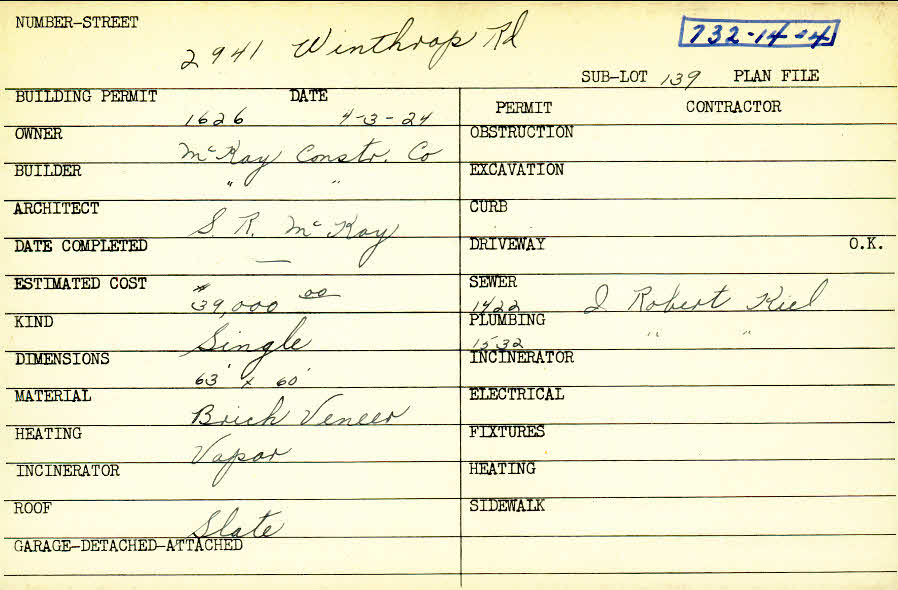 NUMBER-STREET
2941 Winthrop Rd
732-14-4
SUB-LOT 139 PLAN FILE
BUILDING PERMIT DATE
1626 4-3-24
OWNER
McKay Constr. Co
BUILDER
" "
ARCHITECT
S. R. McKay
DATE COMPLETED
—
ESTIMATED COST
$39,000 00
KIND
Single
DIMENSIONS
63' x 60'
MATERIAL
Brick Veneer
HEATING
Vapor
INCINERATOR
ROOF
Slate
GARAGE-DETACHED-ATTACHED
PERMIT CONTRACTOR
OBSTRUCTION
EXCAVATION
CURB
DRIVEWAY O.K.
SEWER
1422 J Robert Kiel
PLUMBING
1532 " "
INCINERATOR
ELECTRICAL
FIXTURES
HEATING
SIDEWALK